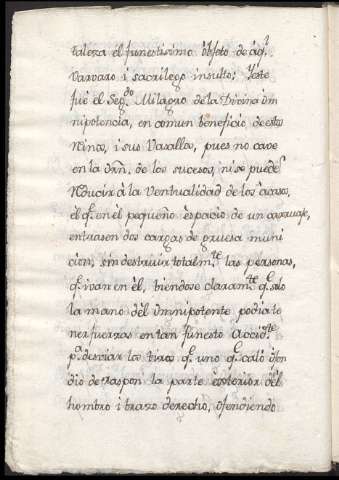 taleza el funestissimo obgeto de aql.
varvaro i sacrilego insulto; Y este
fue el Segdo. Milagro de la Divina Om
nipotencia, en comun beneficio de estos
Reinos, i sus Vasallos, pues no cave
en la Orñ. de los sucesos, ni se puede
reducir à la Ventualidad de los acasos,
el q. en el pequeño espacio de un carruaje,
entrasen dos cargas de gruesa muni
cion, sin destruir totalmte. las personas,
q. ivan en èl, viendose claramte. q. solo
la mano del Omnipotente podia te
ner fuerzas en tan funesto Accidte.
pa. desviar los tiros q. uno q. caló
dio de raspon la parte exsterior del
hombro i brazo derecho, ofendiendo